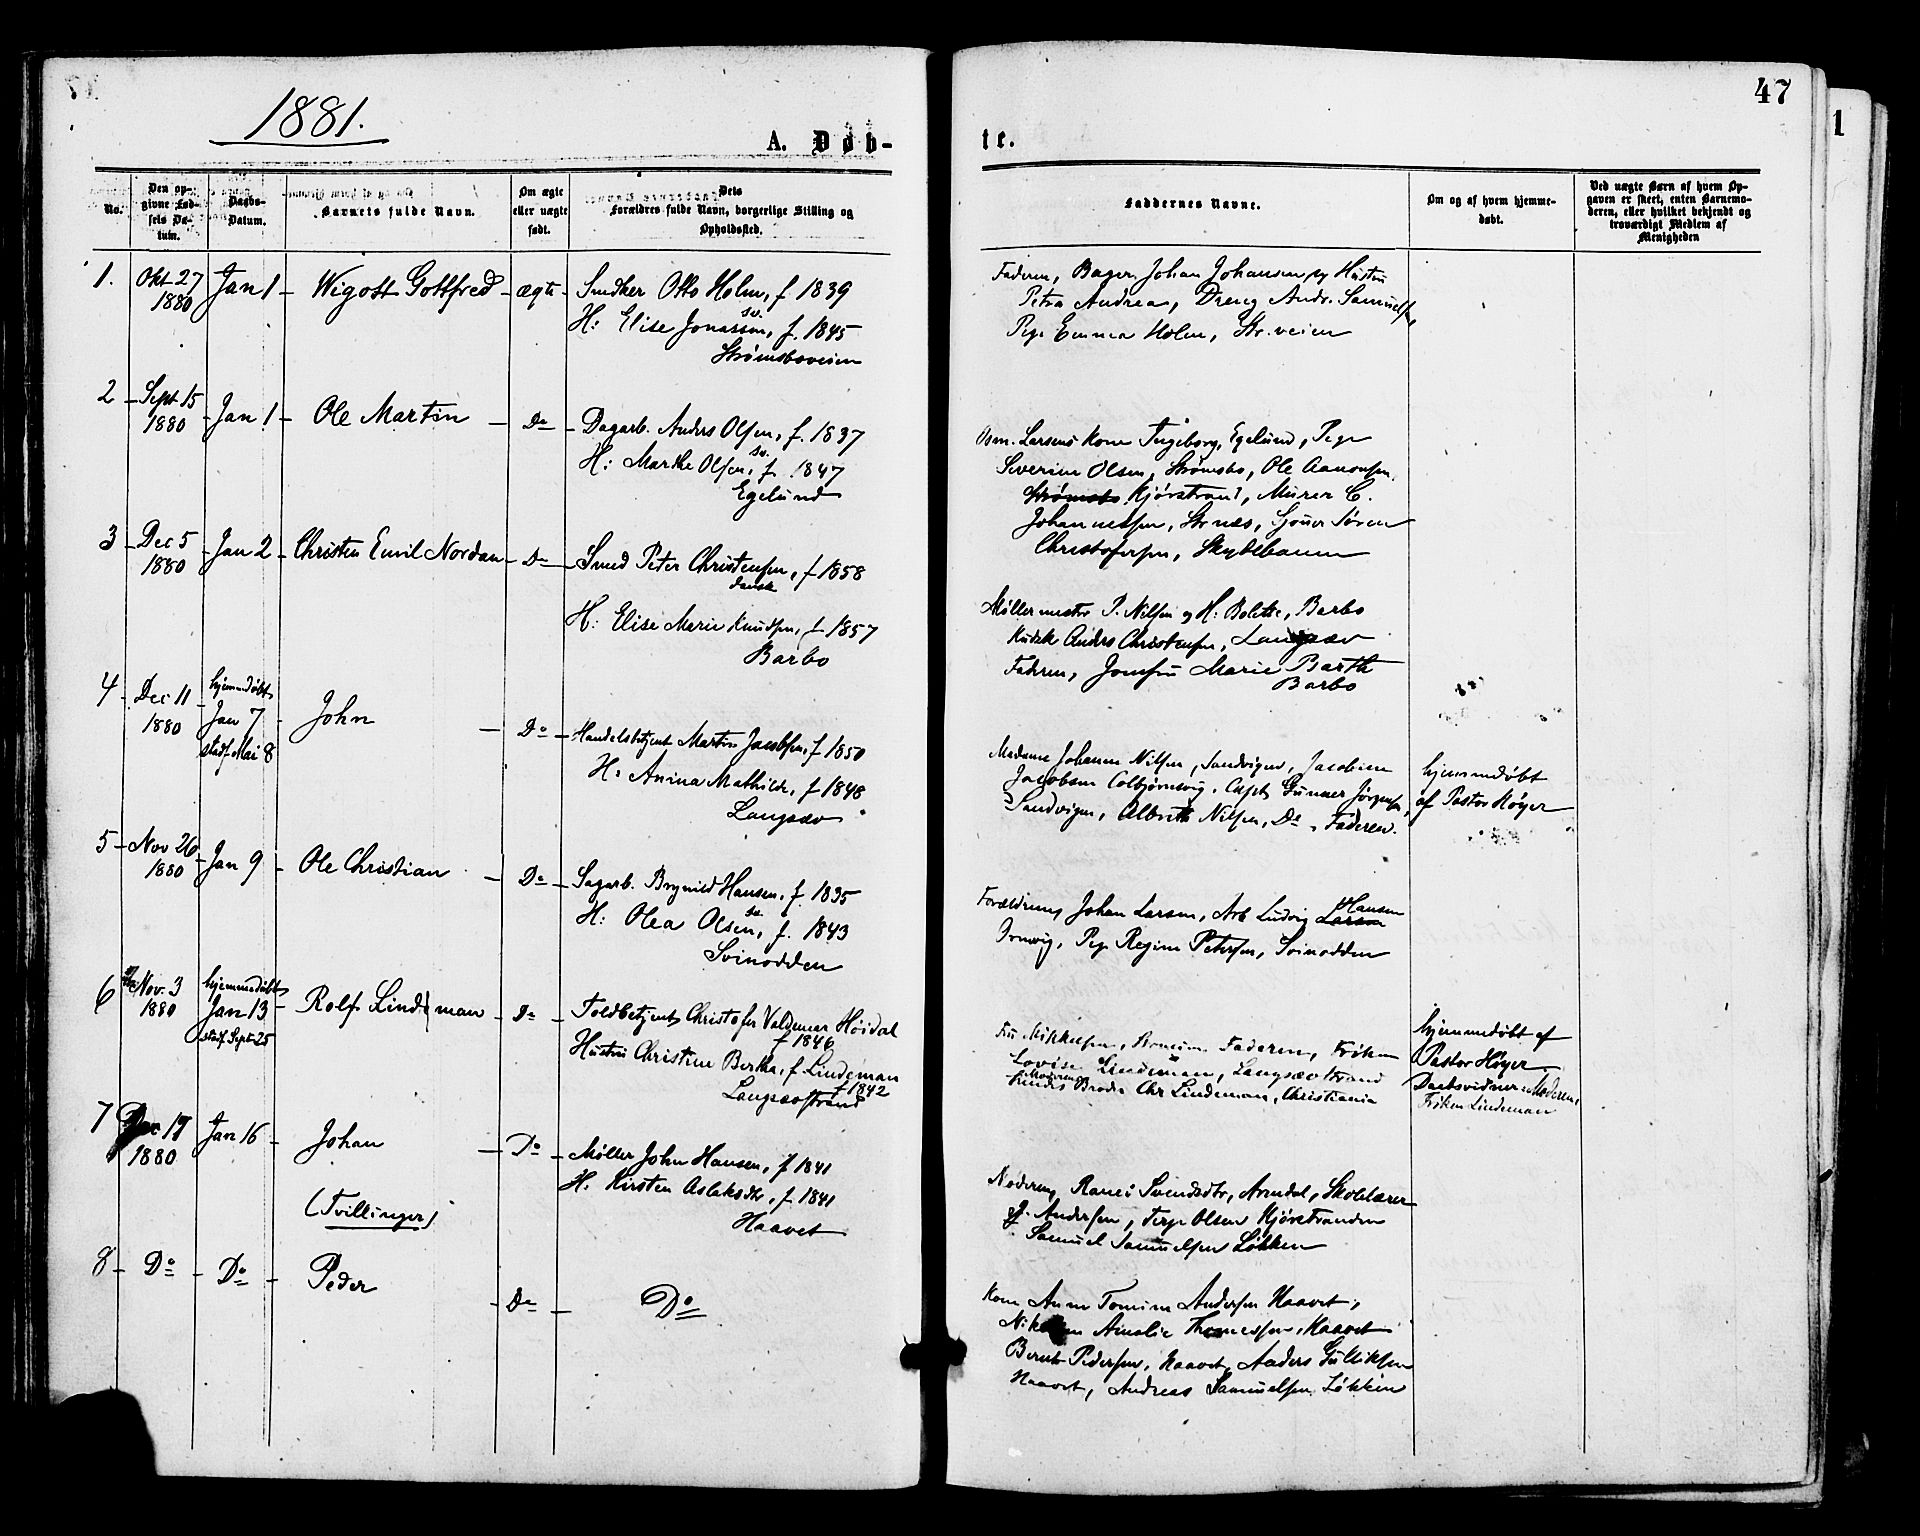 1881.
47
1
A. Døb-
te.
No.
Den op-
givne Fød-
sels Da-
tum.
Daabs-
Datum.
Barnets fulde Navn.
Om ægte
eller uægte
født.
Dets
Forældres fulde Navn, borgerlige Stilling og
Opholdssted.
Faddernes Navne.
Om og af hvem hjemme-
døbt.
Ved uægte Børn af hvem Op-
gaven er skeet, enten Barnemo-
deren, eller hvilket bekjendt og
troværdigt Medlem af
Menigheden
1. Okt 27
1880
Jan 1 - Wigott Gottfred - ægte - Snedker Otto Holm, f 1839
H: Elise Jonassen, f. 1845
Strømsboveien
Faderen, Bager Johan Johansen og Hustru
Petra Andrea, Dreng Andr. Samuelsen,
Pige Emma Holm, Str.veien
2 - Sept 15
1880
- Jan 1 - Ole Martin - Do - Dagarb. Anders Olsen, f. 1837
H: Marthe Olsen, f. 1847
Egelund
Larsens Kone Ingeborg, Egelund, Pige
Severine Olsen, Strømsbo, Ole Aanonsen
Strømsbo Kjørstrand, Murer C.
Johannessen, Strnæs, Søren
Christofersen, Skytebanen
3 - Dec 5
1880
- Jan 2 - Christen Emil Nordan - Do - Smed Peter Christensen, f 1858
dansk
H: Elise Marie Knudsen, f 1857
Barbo
Møllermester P. Nilsen og H: Bolette, Barbo
Kudsk Anders Christensen, Langsæv
Faderen, Jomfru Marie Barth
Barbo
4 - Dec 11
1880
hjemmedøbt
Jan 7
stadf Mai 8
- John - Do - Handelsbetjent Martin Jacobsen, f 1850
H: Anina Mathilde, f 1848
Langsæv
Madame Johanne Nilsen, Sandvigen, Jacobine
Jacobsen Colbjørnsvig, Capt Gunner Jørgensen,
Sandvigen, Albreth Nilsen, Do, Faderen.
hjemmedøbt
af Pastor Høyer
5 - Nov 26
1880
- Jan 9 - Ole Christian - Do - Sagarb. Brynild Hansen, f. 1835
H: Olea Olsen, f. 1843
Svinodden
Forældrene, Johan Larsen, Arb Ludvig Larsen Hansen
Pige Regine Petersen, Svinodden
6 Nov. 3
1880
hjemmedøbt
Jan 13
stadf Sept 25
- Rolf Lindeman - Do - Toldbetjent Christofer Valdemar Høidal
f 1846
Hustru Christine Bertha, f Lindeman
f 1842
Langsævstrand
Fru Mikkelsen, Faderen, Frøken
Lovise Lindeman, Langsævstrand
Moderens Broder Chr Lindeman, Christiania
hjemmedøbt af
Pastor Høyer.
Daabsvidner Moderen,
Frøken Lindeman
7 Dec 17
1880
Jan 16 - Johan - Do - Møller John Hansen, f 1841
H: Kirsten Aslaksdtr, f. 1841
Haavet
(Tvillinger)
Moderen, Svendsdtr, Arendal, Skolelærer
Andersen, Terje Olsen Kjørstranden
Samuel Samuelsen Løkken
8 - Do - Do - Peder - Do - Do
Kone Anne Tomine Andersen Haavet,
Amalie Thomesen, Haavet
Bernt Pedersen, Haavet, Anders Gulliksen
Haavet, Andreas Samuelsen Løkken